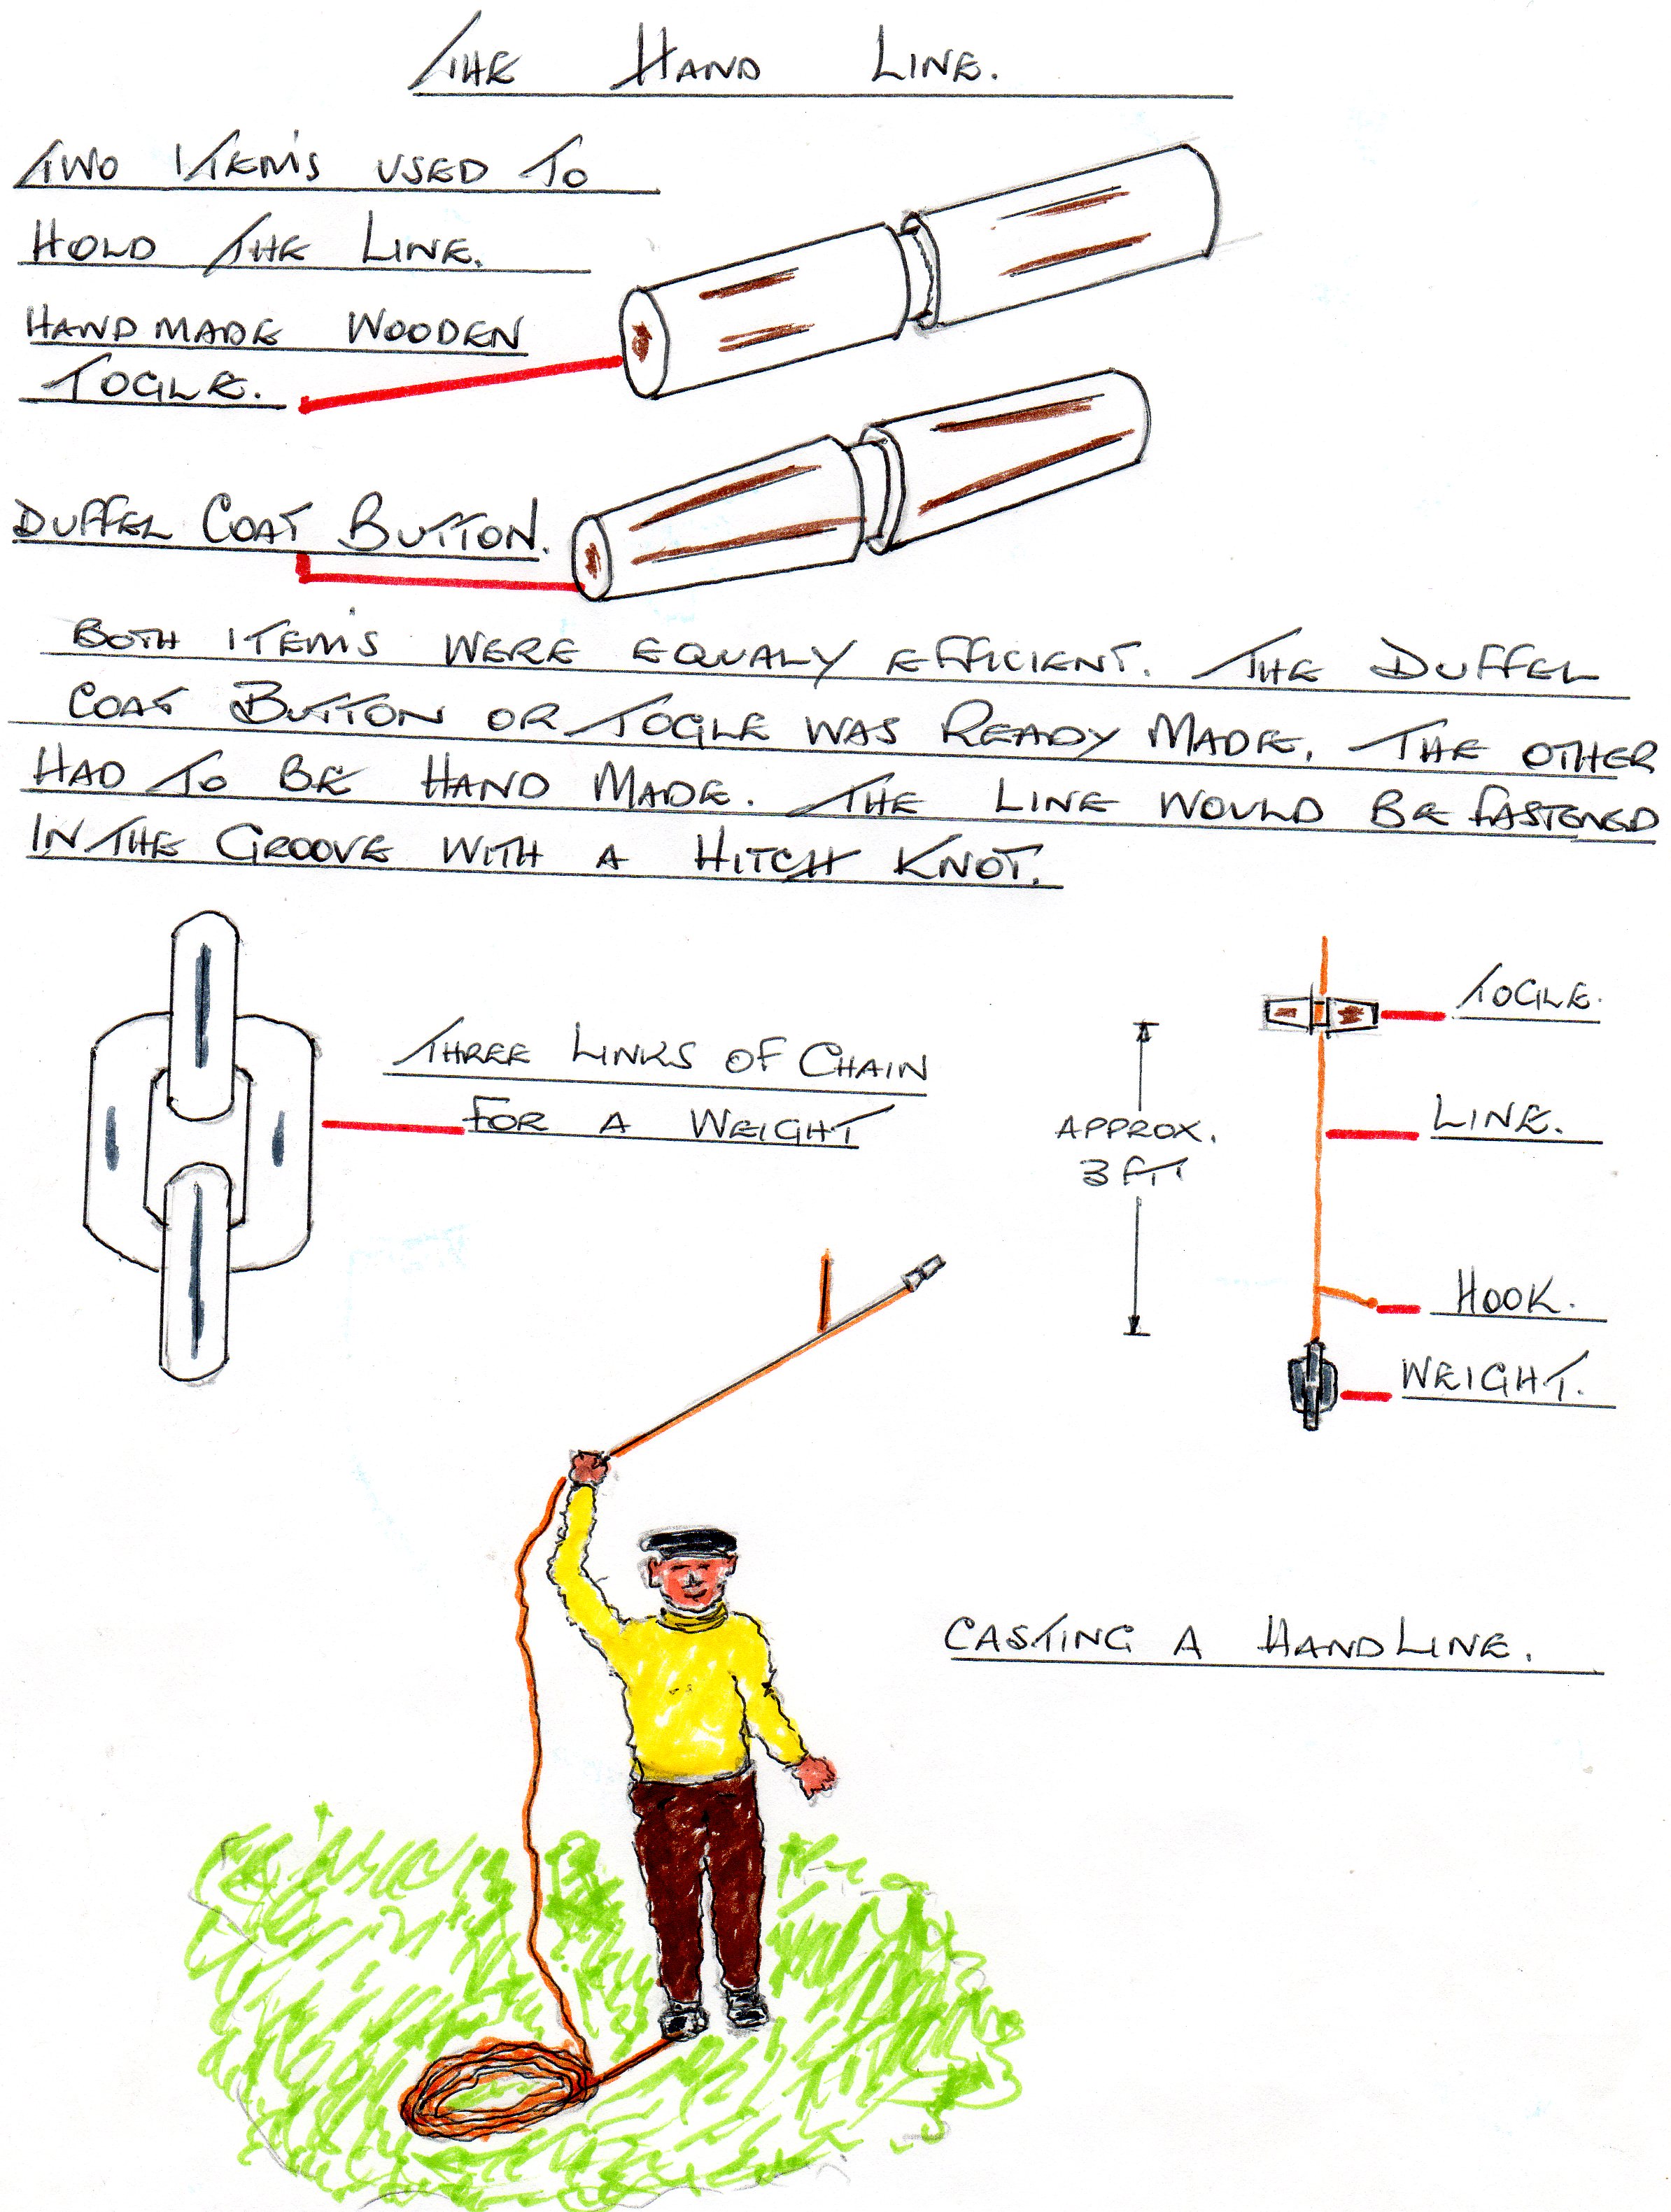 THE HAND LINE.
TWO ITEM'S USED TO
HOLD THE LINE.
HANDMADE WOODEN
TOGLE.
DUFFEL COAT BUTTON.
BOTH ITEM'S WERE EQUALY EFFICIENT. THE DUFFEL
COAT BUTTON OR TOGLE WAS READY MADE. THE OTHER
HAD TO BE HAND MADE. THE LINE WOULD BE FASTENED
IN THE GROOVE WITH A HITCH KNOT.
THREE LINKS OF CHAIN
FOR A WEIGHT
TOGLE.
LINE.
APPROX.
3 FT.
HOOK.
WEIGHT.
CASTING A HANDLINE.